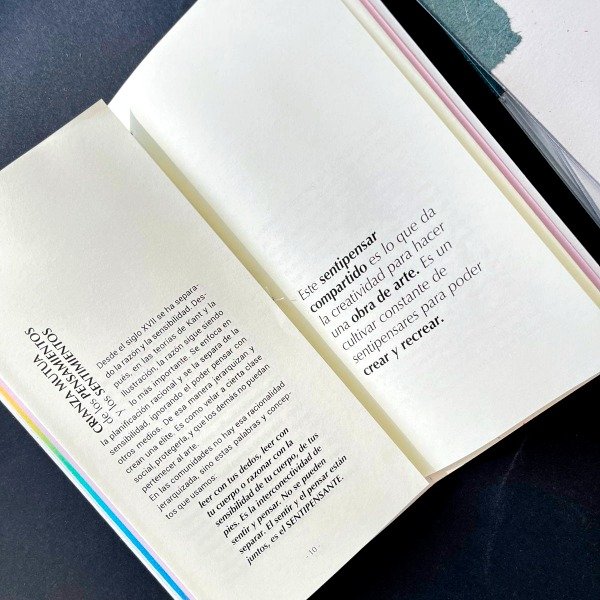 CRIANZA MUTUA
de los PENSAMIENTOS
y los SENTIMIENTOS
Desde el siglo XVII se ha separa-
do la razón y la sensibilidad. Des-
pués, en las teorías de Kant y la
Ilustración, la razón sigue siendo
lo más importante. Se enfoca en
la planificación racional y se la separa de la
sensibilidad, ignorando el poder pensar con
otros medios. De esa manera jerarquizan, y
crean una elite. Es como velar a cierta clase
social, protegerla, y que los demás no puedan
pertenecer al arte.
En las comunidades no hay esa racionalidad
jerarquizada, sino estas palabras y concep-
tos que usamos:
leer con tus dedos, leer con
tu cuerpo o razonar con la
sensibilidad de tu cuerpo, de tus
pies. Es la interconectividad de
sentir y pensar. No se pueden
separar. El sentir y el pensar están
juntos, es el SENTIPENSANTE.
· 10
Este sentipensar
compartido es lo que da
la creatividad para hacer
una obra de arte. Es un
cultivar constante de
sentipensares para poder
crear y recrear.